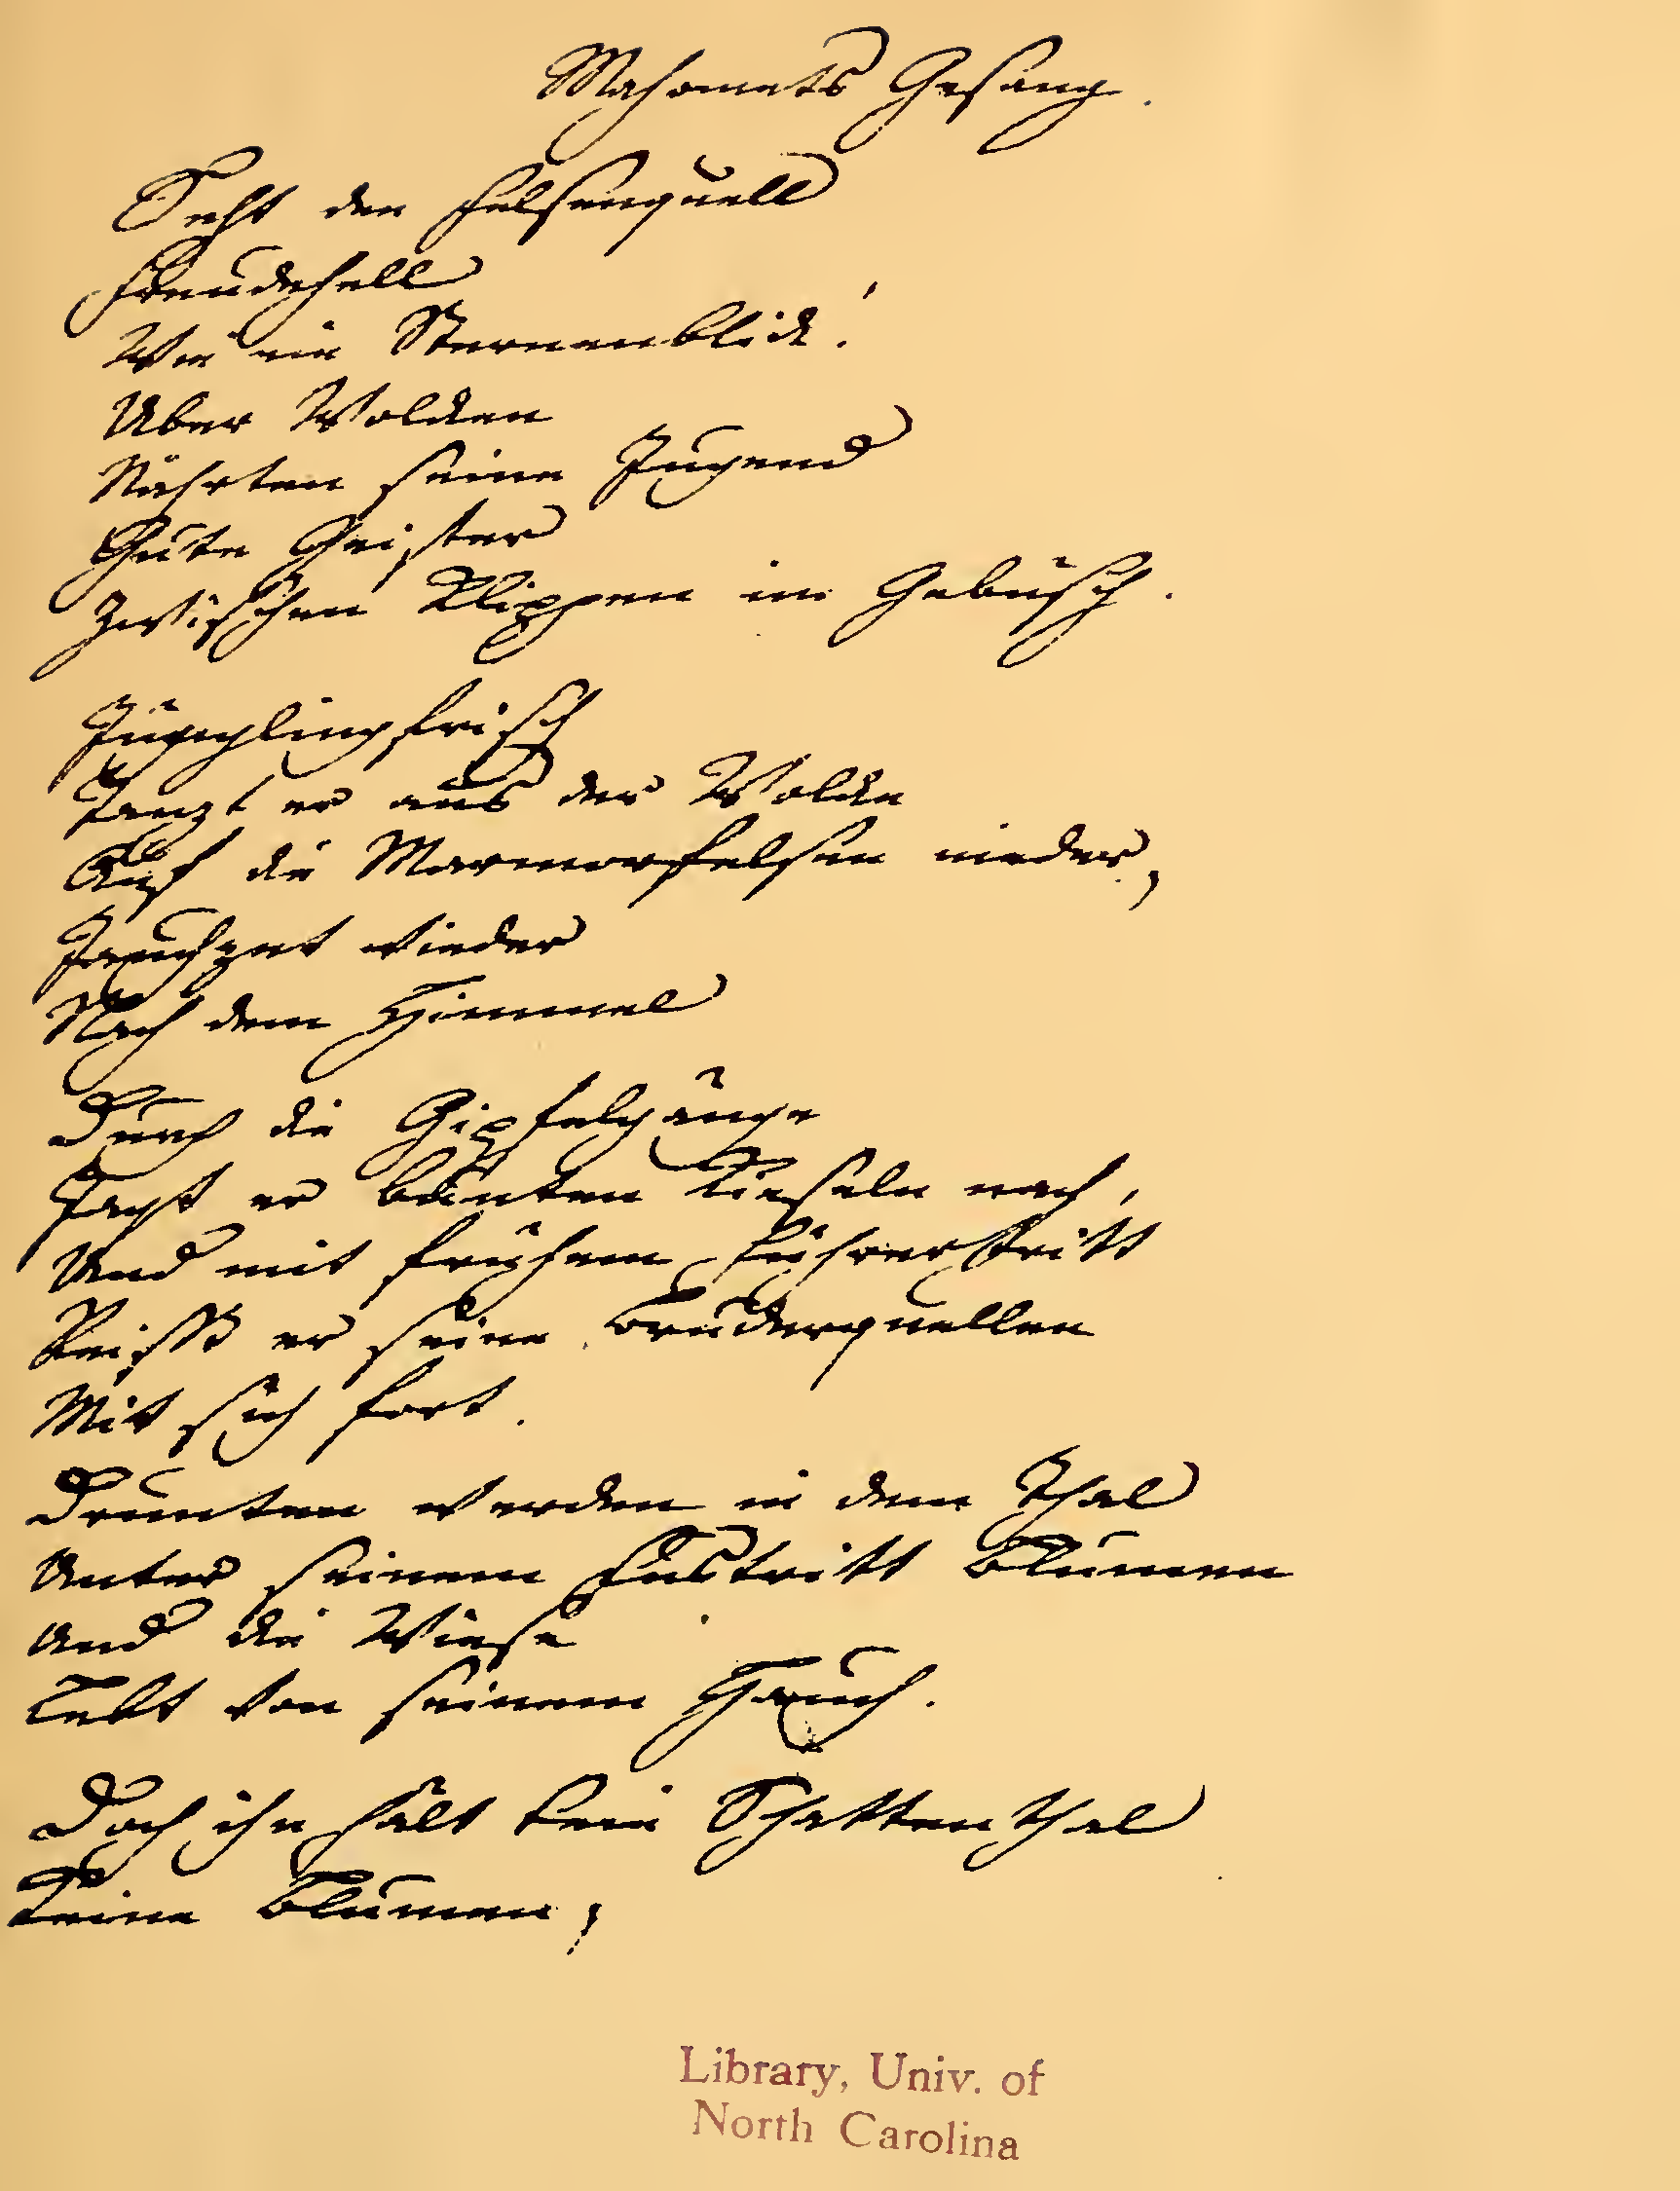 Mahomets Gesang.
Seht den Felsenquell
Freudehell
Wie ein Sternenblick!
Uber Wolcken
Nährten seine Jugend
Gute Geister
Zwischen Klippen im Gebüsch.
Jünglingfrisch
Tanzt er aus der Wolcke
Auf die Marmorfelsen nieder,
Jauchzet wieder
Nach dem Himmel
Durch die Gipfelgänge
Jagt er bunten Kieseln nach,
Und mit frühem Führertritt
Reisst er seine Bruderquellen
Mit sich fort.
Drunten werden in dem Thal
Unter seinem Fustritt Blumen
Und die Wiese
Lebt von seinem Hauch.
Doch ihn hält kein Schattenthal
Keine Blumen,
Library, Univ. of
North Carolina